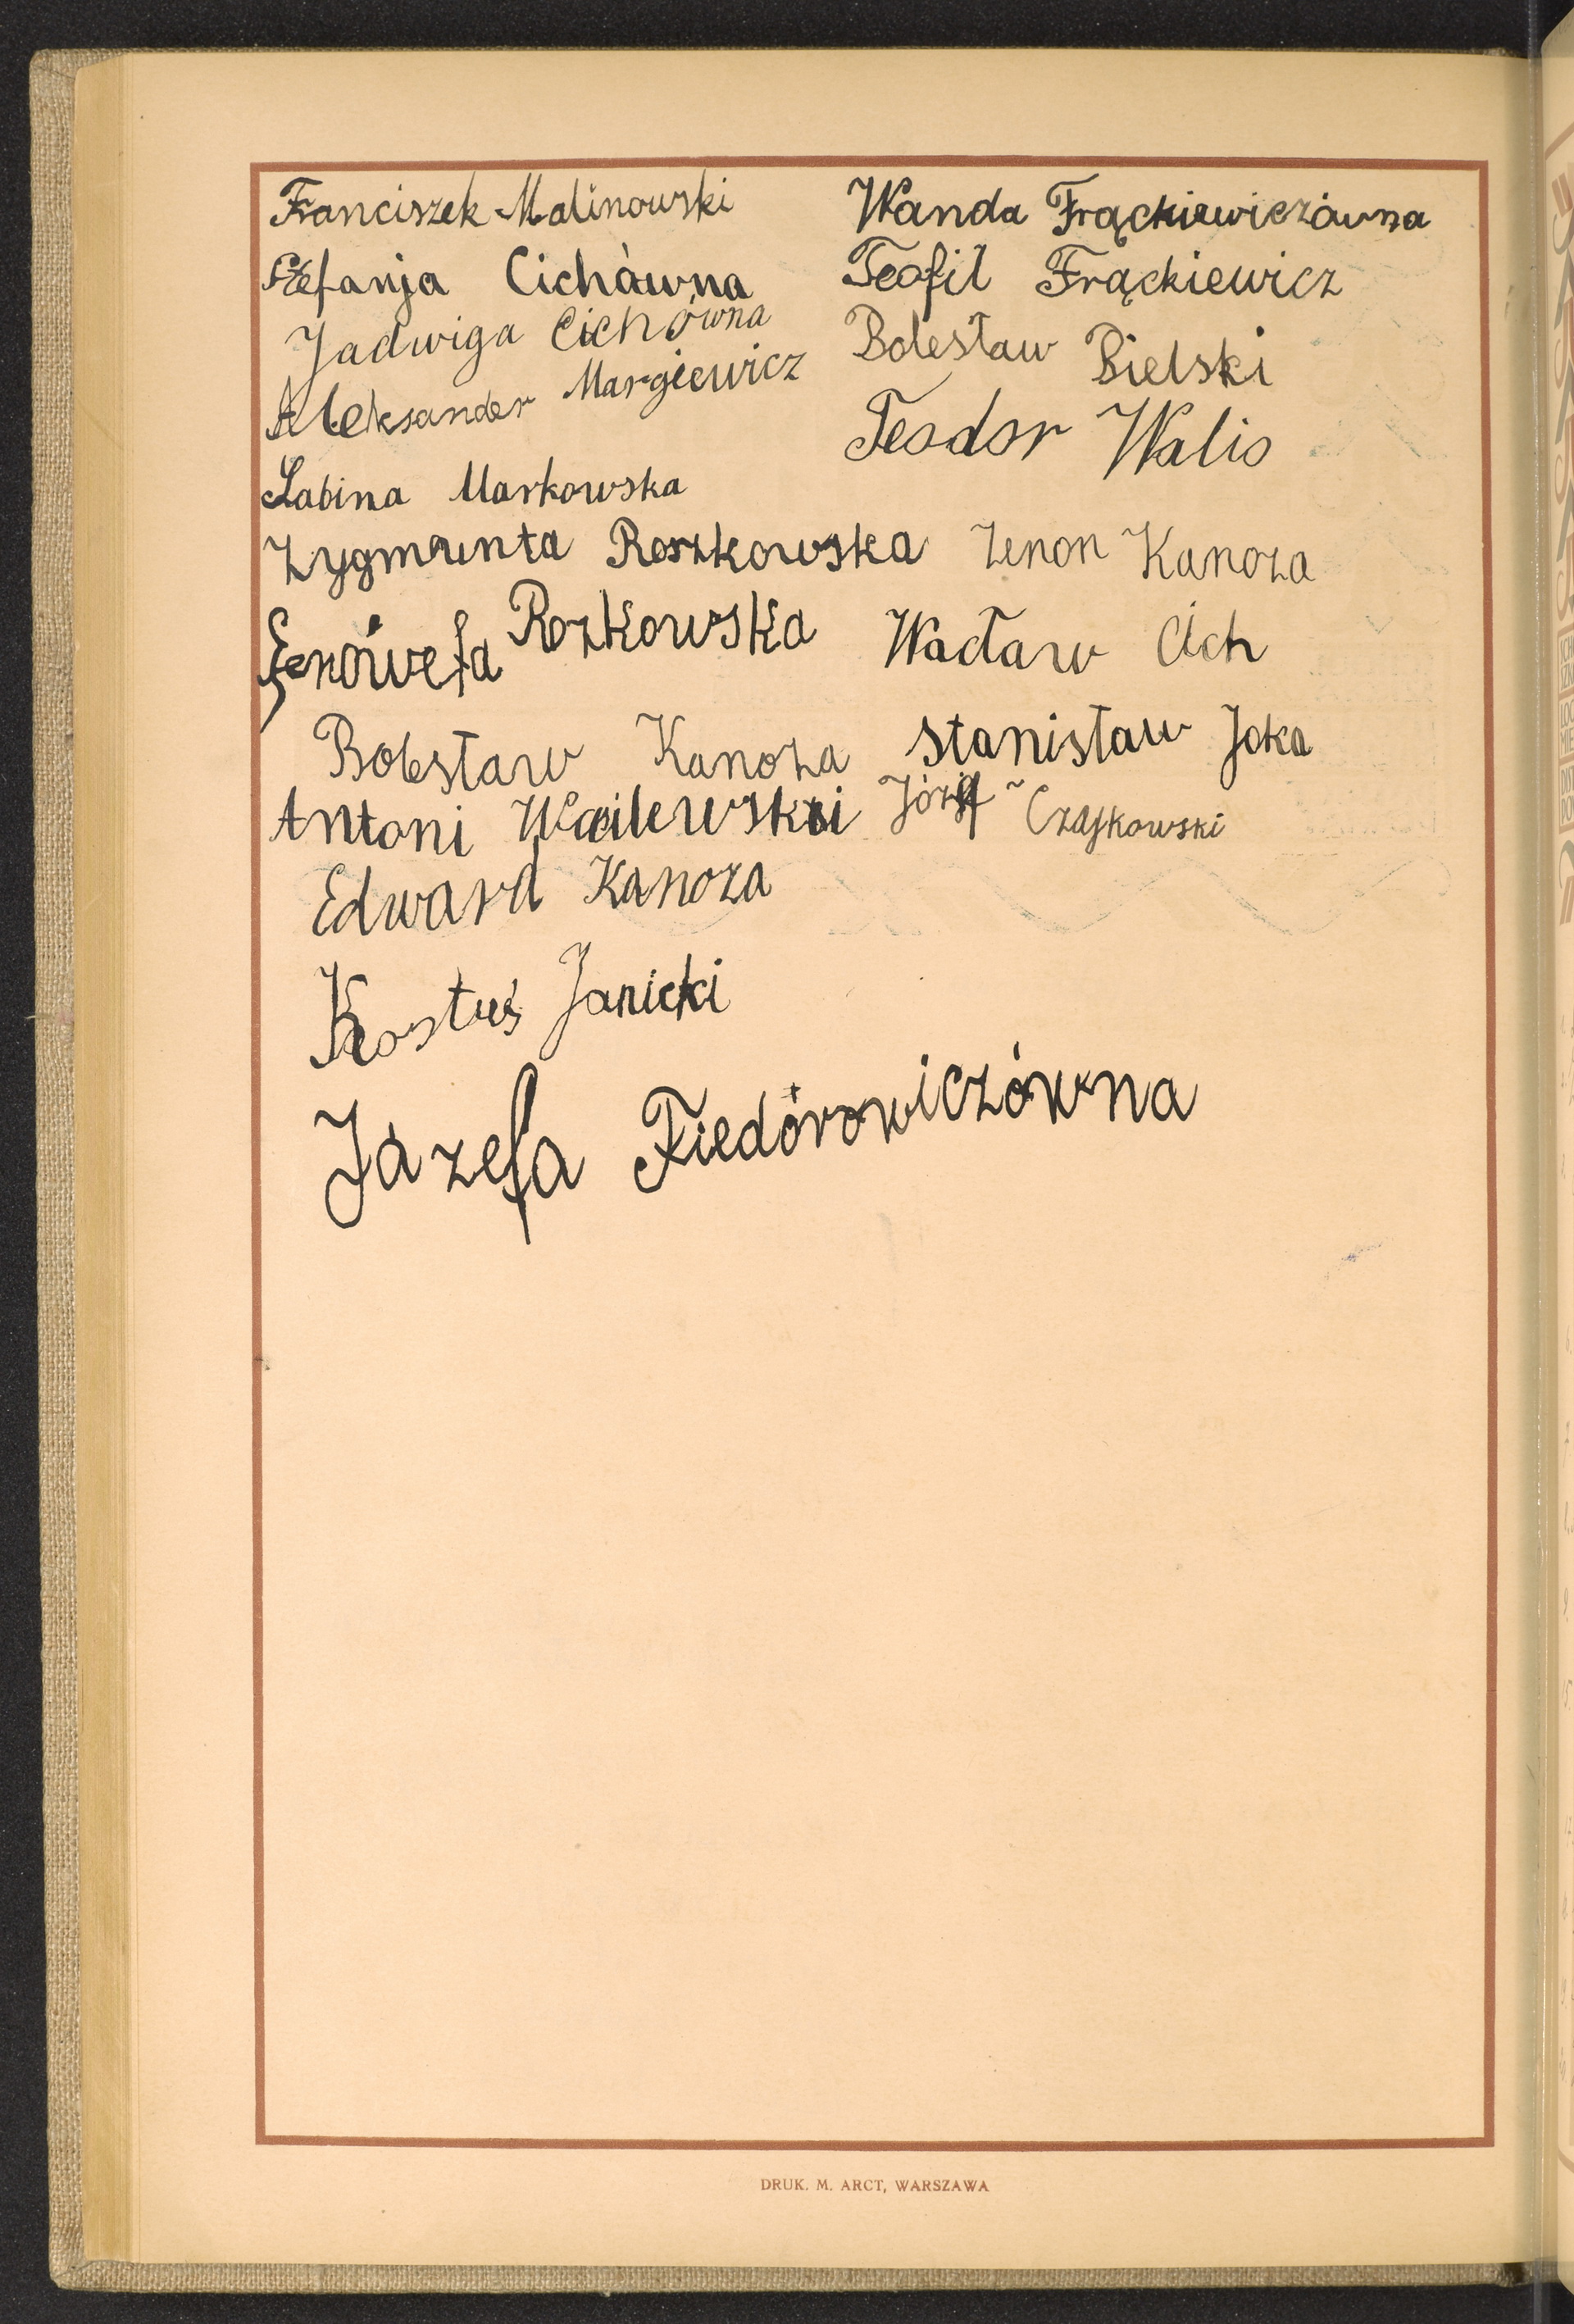 Franciszek Malinowski
Stefanja Cichówna
Jadwiga Cichówna
Aleksander Margiewicz
Sabina Markowska
Zygmunta Roszkowska
Genówefa Rozkowska
Bolesław Kanoza
Antoni
Edward Kanoza
Kostuś Janicki
Józefa Fiedórowiczówna
Wanda Frąckiewiczówna
Teofil Frąckiewicz
Bolesław Bielski
Teodor Walio
Zenon Kanoza
Wacław Cich
Stanisław Joka
Józef Czajkowski
DRUK. M. ARCT, WARSZAWA